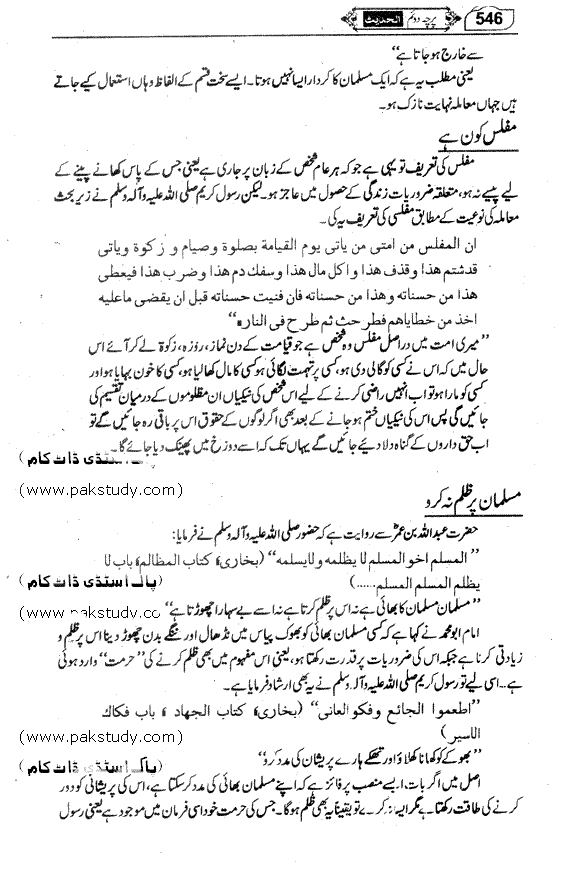 546 پرچہ دوئم الحدیث
سے خارج ہو جاتا ہے“
یعنی مطلب یہ ہے کہ ایک مسلمان کا کردار ایسا نہیں ہوتا۔ ایسے سخت قسم کے الفاظ وہاں استعمال کیے جاتے
ہیں جہاں معاملہ نہایت نازک ہو۔
مفلس کون ہے
مفلس کی تعریف تو یہی ہے جو کہ ہر عام شخص کے زبان پر جاری ہے یعنی جس کے پاس کھانے پینے کے
لیے پیسے نہ ہو، متعلقہ ضروریات زندگی کے حصول میں عاجز ہو۔ لیکن رسول کریم صلی اللہ علیہ وآلہ وسلم نے زیر بحث
معاملہ کی نوعیت کے مطابق مفلسی کی تعریف یہ کی۔
ان المفلس من امتی من یاتی یوم القیامة بصلوة وصیام و زکوة ویاتی
قدشتم هذا وقذف هذا واکل مال هذا وسفک دم هذا وضرب هذا فیعطی
هذا من حسناته وهذا من حسناته فان فنیت حسناته قبل ان یقضی ماعلیه
اخذ من خطایاهم فطرحت ثم طرح فی النار“
”میری امت میں دراصل مفلس وہ شخص ہے جو قیامت کے دن نماز، روزہ، زکوۃ لے کر آئے اس
حال میں کہ اس نے کسی کو گالی دی ہو، کسی پر تہمت لگائی ہو کسی کا مال کھا لیا ہو، کسی کا خون بہایا ہو اور
کسی کو مارا ہو تو اب انہیں راضی کرنے کے لیے اس شخص کی نیکیاں ان مظلوموں کے درمیان تقسیم کی
جائیں گی پس اس کی نیکیاں ختم ہو جانے کے بعد بھی اگر لوگوں کے حقوق اس پر باقی رہ جائیں گے تو
اب حق داروں کے گناہ دلا دیئے جائیں گے یہاں تک کہ اسے دوزخ میں پھینک دیا جائے گا۔
اسٹڈی ڈاٹ کام)
(www.pakstudy.com)
مسلمان پر ظلم نہ کرو
حضرت عبداللہ بن عمرؓ سے روایت ہے کہ حضور صلی اللہ علیہ وآلہ وسلم نے فرمایا:
”المسلم اخو المسلم لا یظلمه ولا یسلمه“ (بخاری، کتاب المظالم، باب لا
یظلم المسلم المسلم......)
(پاک اسٹڈی ڈاٹ کام)
”مسلمان مسلمان کا بھائی ہے نہ اس پر ظلم کرتا ہے نہ اسے بے سہارا چھوڑتا ہے“
(www.pakstudy.co
امام ابو محمد نے کہا ہے کہ کسی مسلمان بھائی کو بھوک پیاس میں نڈھال اور ننگے بدن چھوڑ دینا اس پر ظلم و
زیادتی کرنا ہے جبکہ اس کی ضروریات پر قدرت رکھتا ہو، یعنی اس مفہوم میں بھی ظلم کرنے کی ”حرمت“ وارد ہوئی
ہے۔ اسی لیے تو رسول کریم صلی اللہ علیہ وآلہ وسلم نے یہ بھی ارشاد فرمایا ہے۔
”اطعموا الجائع وفکو العانی“ (بخاری، کتاب الجهاد، باب فکاک
الاسیر)
(www.pakstudy.com)
”بھوکے کو کھانا کھلاؤ اور تھکے ہارے پریشان کی مدد کرو“
(پاک اسٹڈی ڈاٹ کام)
اصل میں اگر بات، ایسے منصب پر فائز ہے کہ اپنے مسلمان بھائی کی مدد کر سکتا ہے، اس کی پریشانی کو دور
کرنے کی طاقت رکھتا ہے مگر ایسا نہ کرے تو یقیناً یہ بھی ظلم ہوگا۔ جس کی حرمت خود اسی فرمان میں موجود ہے یعنی رسول